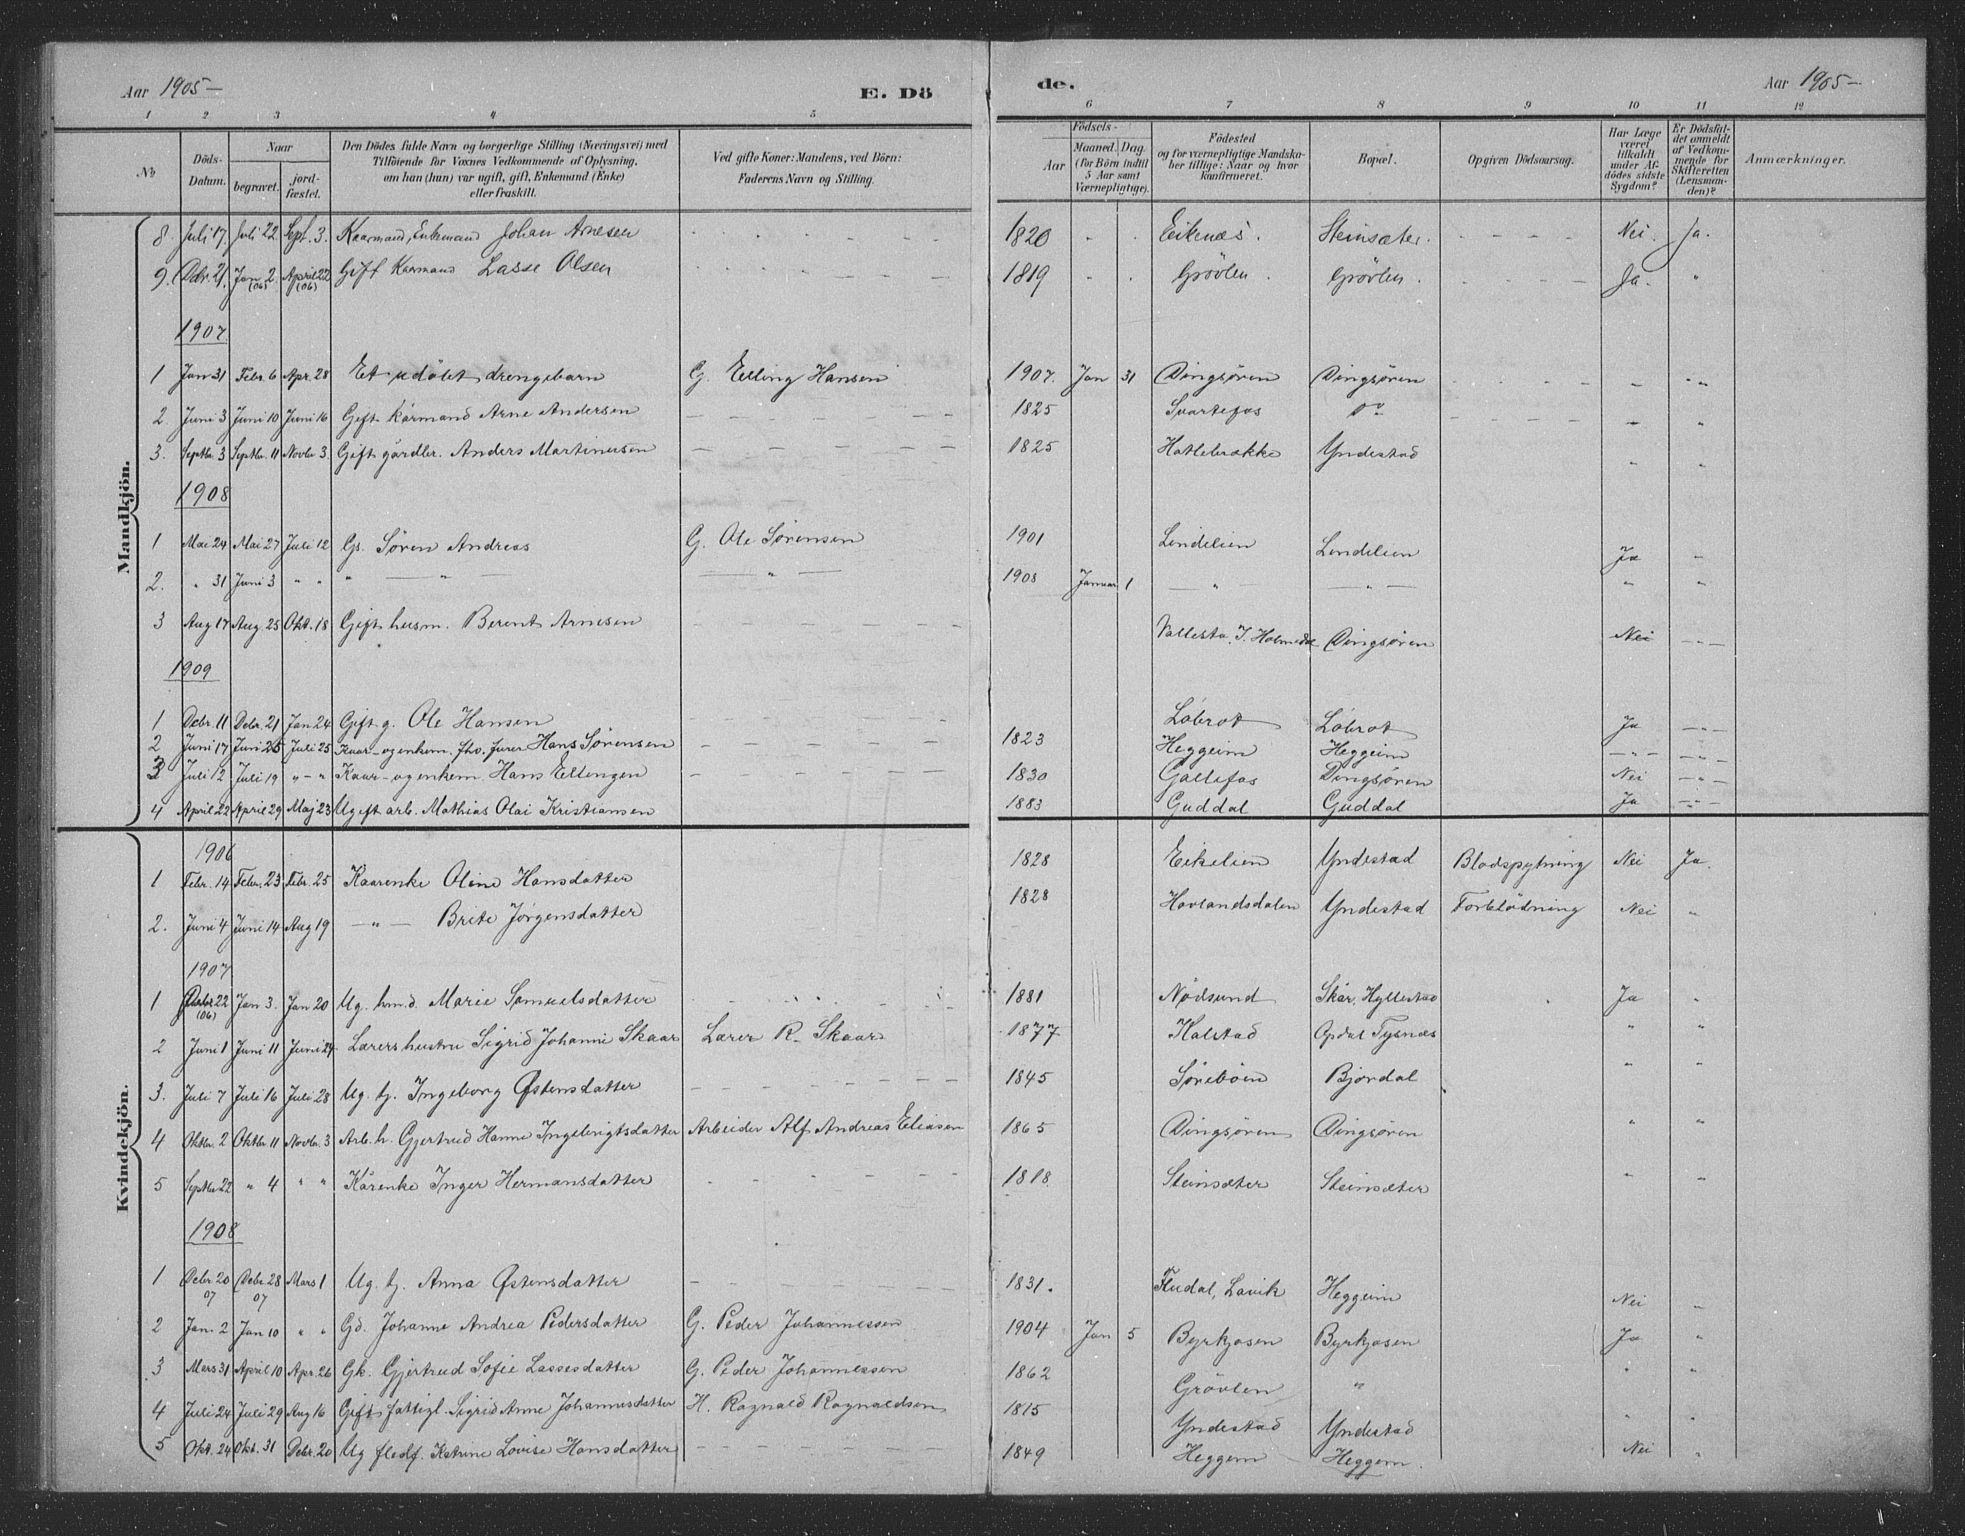 Aar 1905 – E. Dö
de. Aar 1905 –
1 2 3 4 5
6 7 8 9 10 11 12
No
Döds-Datum.
Naar
begravet.
jord-fæstet.
Den Dödes fulde Navn og borgerlige Stilling (Næringsvei) med
Tilföiende for Voxnes Vedkommende af Oplysning,
om han (hun) var ugift, gift, Enkemand (Enke)
eller fraskilt.
Ved gifte Koner: Mandens, ved Börn:
Faderens Navn og Stilling.
Födsels-
Aar
Maaned. Dag.
(for Börn indtil
5 Aar samt
Værnepligtige).
Födested
og for værnepligtige Mandska-
ber tillige: Naar og hvor
konfirmeret.
Bopæl.
Opgiven Dödsaarsag.
Har Læge
været
tilkaldt
under Af-
dödes sidste
Sygdom?
Er Dödsfal-
det anmeldt
af Vedkom-
mende for
Skifteretten
(Lensman-
den)?
Anmærkninger.
Mandkjön.
8. Juli 17. Juli 22 Sept. 3. Kaarmand, Enkemand Johan Arnesen 1820 Eikenæs. Steinsæter. Nei. Ja.
9. Debr. 21. Jan. 2 (06) April 22 (06) Gift Karmand Lasse Olsen 1819 Grövlen. Grövlen. Ja. "
1907
1 Jan 31 Febr. 6 Apr. 28 Et udöbt drengebarn G. Elling Hansen 1907. Jan 31 Dingsören Dingsören " "
2 Juni 3 Juni 10 Juni 16 Gift kårmand Arne Andersen 1825 Svartefos do " "
3. Septbr. 3 Septbr. 11 Novbr 3. Gift gårdbr. Anders Martinusen 1825 Hatlebrække Yndestad " "
1908
1 Mai 24 Mai 27 Juli 12 Gs. Søren Andreas G. Ole Sørensen 1901 Lindelien Lindelien Ja "
2. " 31 Juni 3 " " " — " — — " — 1908 Januar 1 " — — " — " "
3 Aug 17 Aug. 25 Okt. 18 Gift husm. Berent Arnesen Vallesta, Y. Holmedal Dingsören Nei "
1909
1 Debr. 11 Debr. 21 Jan 24 Gift g. Ole Hansen Løbrot Løbrot Ja "
2 Juni 17 Juni 25 Juli 25 Kaar- og enkem. fhv. furer Hans Sørensen 1823 Heggeim Heggeim " "
3 Juli 12 Juli 19 " - " Kaar- og enkem. Hans Ellingen 1830 Gallefos Dingsøren Nei "
4 April 22 April 29 Maj 23 Ugift arb. Mathias Olai Kristiansen 1883 Guddal Guddal Ja "
Kvindekjön.
1906
1 Febr. 14 Febr. 23 Febr. 25 Kaarenke Oline Hansdatter 1828 Eikelien Yndestad Blodspytning Nei Ja.
2. Juni 4 Juni 14 Aug 19 — " — Brite Jørgensdatter 1828 Hovlandsdalen Yndestad Forblödning Nei "
1907
1 Debr 22 (06) Jan 3. Jan 20 Ug. hmd. Marie Samuelsdatter 1881 Nødsund Skår, Hyllestad Ja "
2 Juni 1 Juni 11 Juni 24 Lærers hustru Sigrid Johanne Skaar Lærer R. Skaar 1877 Kalstad Opdal Tysnæs " "
3. Juli 7 Juli 16 Juli 28 Ug. bj. Ingeborg Østensdatter 1845 Sørebøen Bjordal " "
4 Oktbr. 2 Oktbr. 11 Novbr. 3 Arb. h. Gjertrud Hanne Ingebrigtsdatter Arbeider Alf Andreas Eliasen 1865 Dingsøren Dingsøren " "
5 Septbr 22 " 4 " " Kårenke Inger Hermansdatter 1818 Steinsæter Steinsæter " "
1908
1 Debr 20 07 Debr. 28 07 Mars 1 Ug. bj. Anna Østensdatter 1831. Lavik Heggeim Nei "
2 Jan. 2 Jan 10 " " Gd. Johanne Andrea Pedersdatter G. Peder Johannessen 1904 Jan 5 Byrkjosen Byrkjosen Ja "
3 Mars 31 April 10 Apr. 26 Gk. Gjertrud Sofie Lassesdatter G. Peder Johannessen 1862 Grövlen " " "
4 Juli 24 Juli 29 Aug 16 Gift fattigl. Sigrid Anne Johannesdatter H. Ragnald Ragnaldsen 1815 Yndestad Yndestad " "
5 Okt. 24 Okt. 31 Debr. 20 Ug Katrine Lovise Hansdatter 1849 Heggem Heggem. Nei "